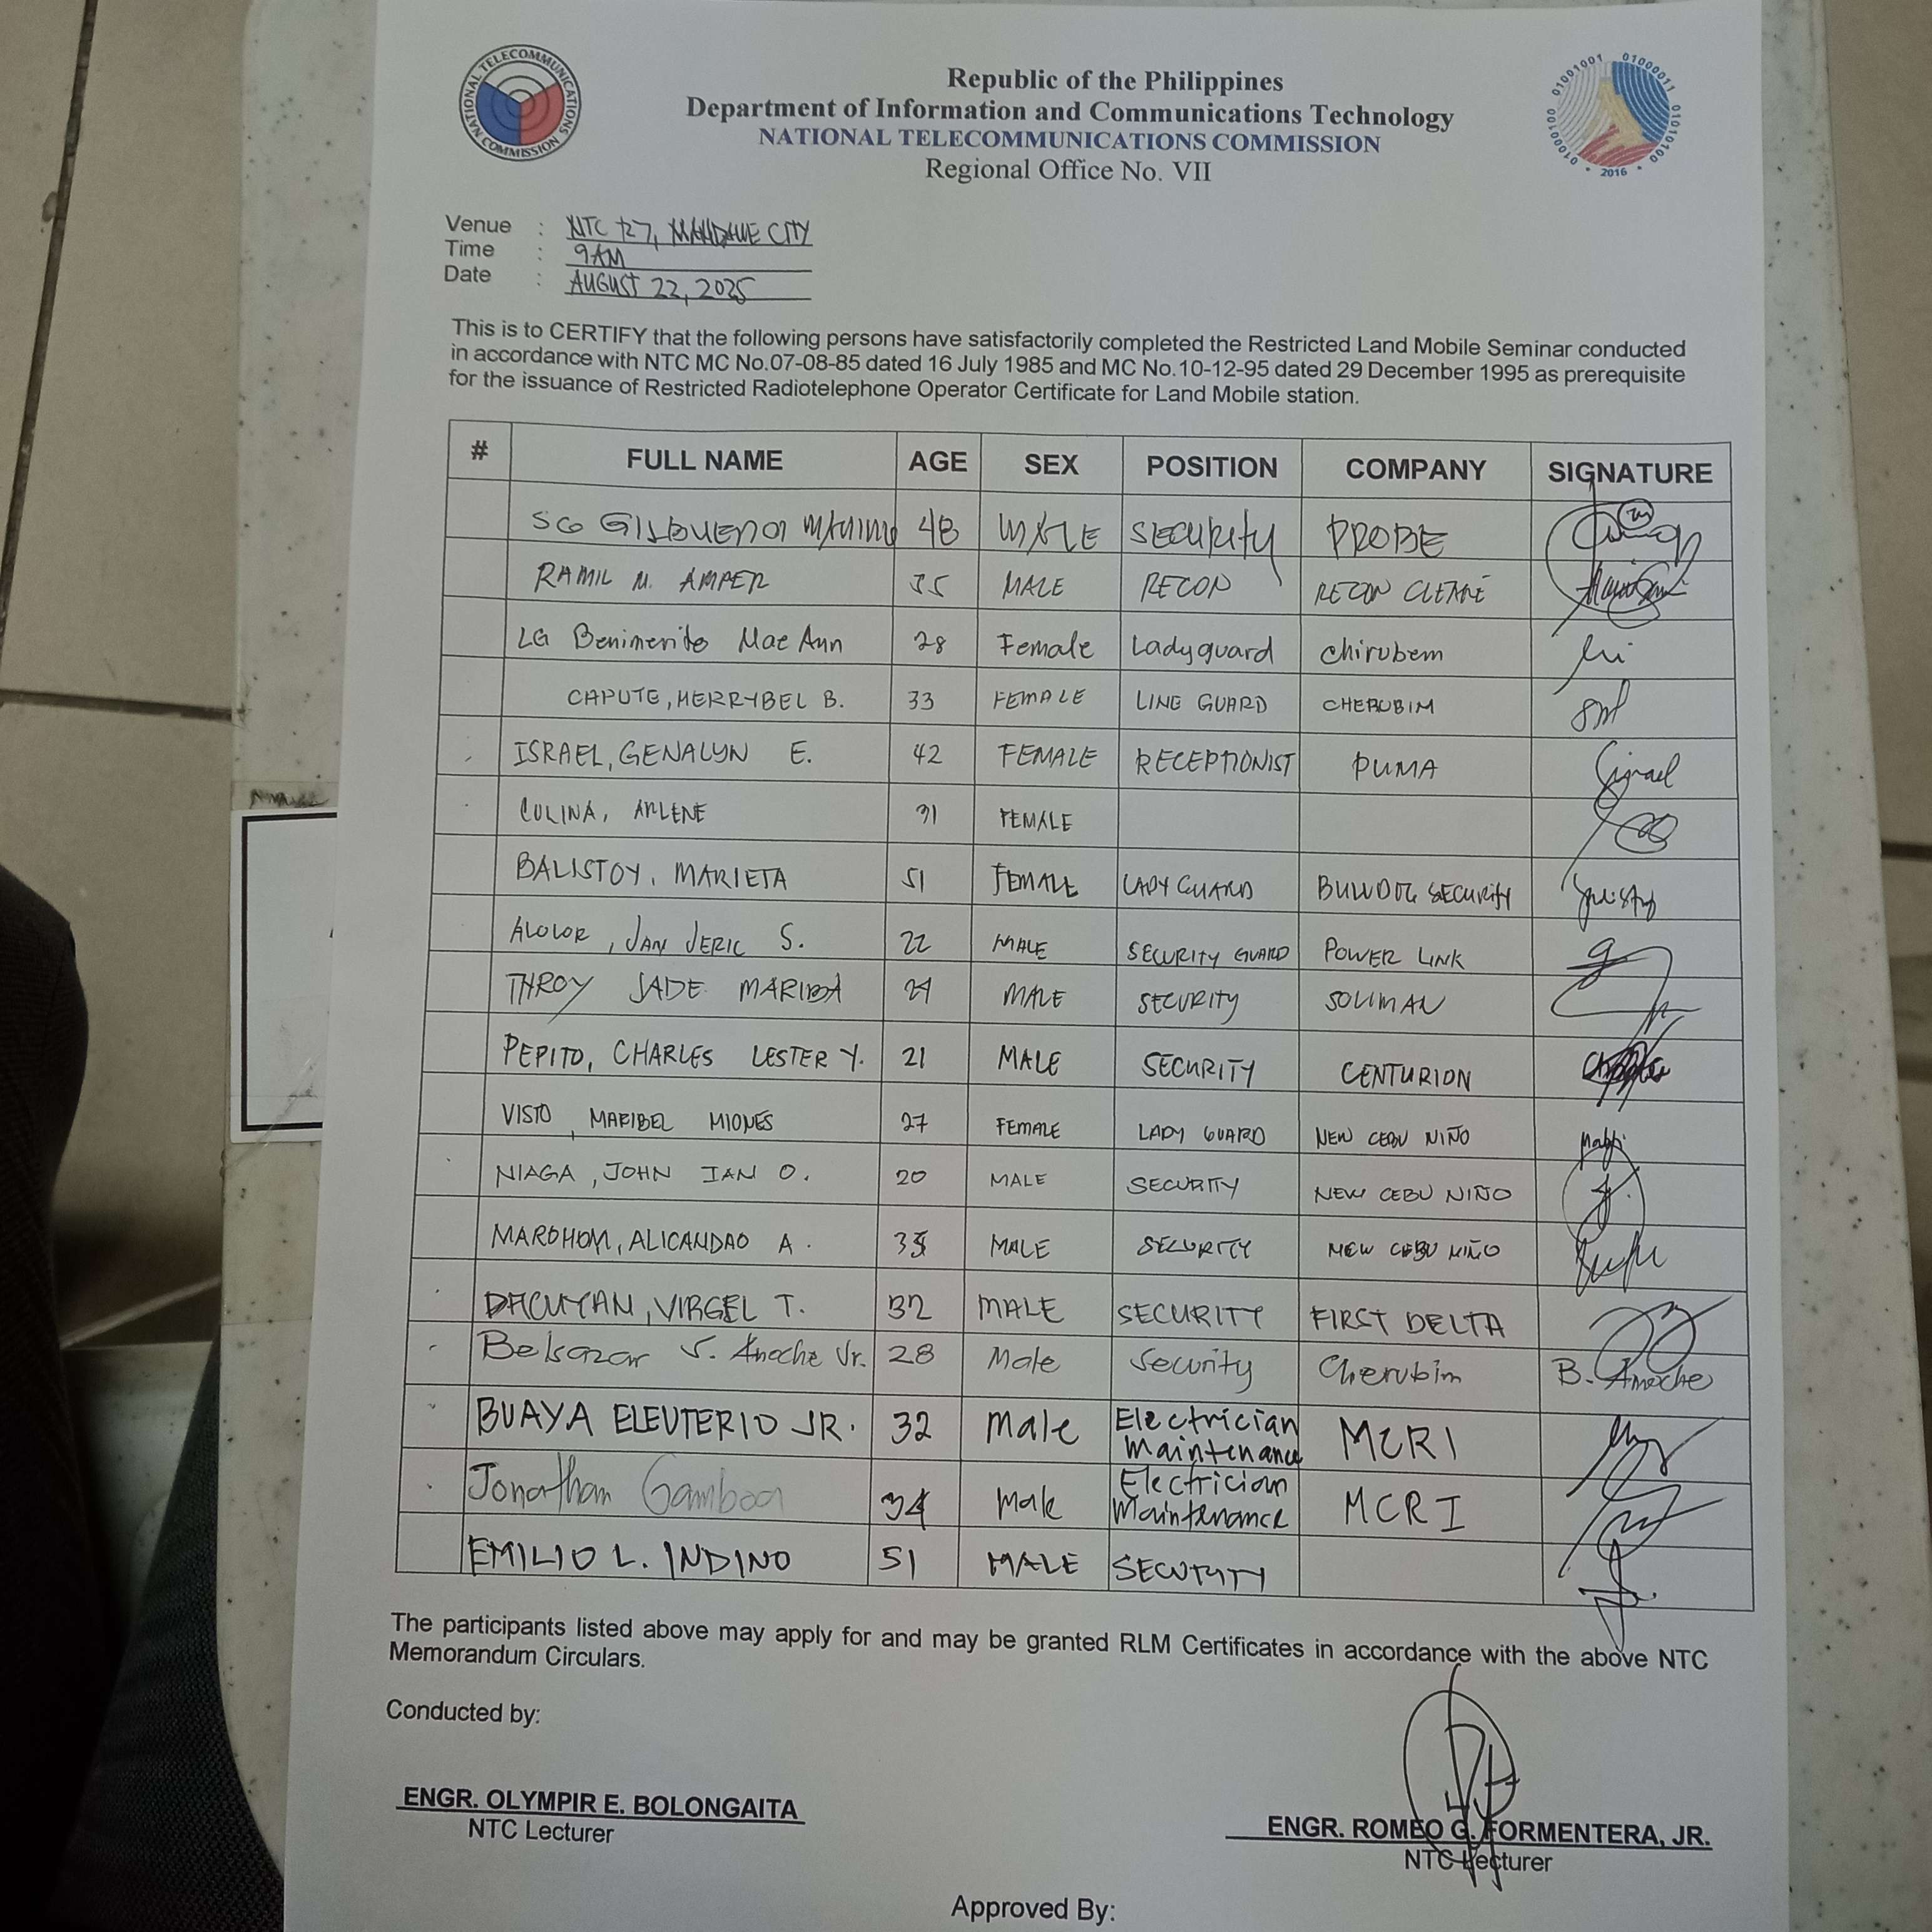 NATIONAL TELECOMMUNICATIONS COMMISSION
01000100 01001001 01000011 01010100
• 2016 •
Republic of the Philippines
Department of Information and Communications Technology
NATIONAL TELECOMMUNICATIONS COMMISSION
Regional Office No. VII
Venue : NTC R7, MANDAUE CITY
Time : 9AM
Date : AUGUST 22, 2025
This is to CERTIFY that the following persons have satisfactorily completed the Restricted Land Mobile Seminar conducted
in accordance with NTC MC No.07-08-85 dated 16 July 1985 and MC No.10-12-95 dated 29 December 1995 as prerequisite
for the issuance of Restricted Radiotelephone Operator Certificate for Land Mobile station.
# FULL NAME AGE SEX POSITION COMPANY SIGNATURE
SG GILBUENA 48 MALE SECURITY PROBE
RAMIL M. AMPER 35 MALE RECON RECON
LG Benimerito Mae Ann 28 Female Ladyguard chirubem
CAPUTE, MERRYBEL B. 33 FEMALE LINE GUARD CHERUBIM
ISRAEL, GENALYN E. 42 FEMALE RECEPTIONIST PUMA
COLINA, ARLENE 31 FEMALE
BALISTOY, MARIETA 51 FEMALE LADY GUARD BULLDOG SECURITY
ALOLOR, JAN JERIC S. 22 MALE SECURITY GUARD POWER LINK
THROY JADE MARIBA 21 MALE SECURITY SOLIMAN
PEPITO, CHARLES LESTER Y. 21 MALE SECURITY CENTURION
VISTO, MARIBEL MIONES 27 FEMALE LADY GUARD NEW CEBU NIÑO
NIAGA, JOHN IAN O. 20 MALE SECURITY NEW CEBU NIÑO
MAROHOM, ALICANDAO A. 35 MALE SECURITY NEW CEBU NIÑO
DACUYAN, VIRGEL T. 32 MALE SECURITY FIRST DELTA
Belsazar S. Anoche Jr. 28 Male Security Cherubim B. Anoche
BUAYA ELEUTERIO JR. 32 Male Electrician Maintenance MCRI
Jonathan Gamboa 34 Male Electrician Maintenance MCRI
EMILIO L. INDINO 51 MALE SECURITY
The participants listed above may apply for and may be granted RLM Certificates in accordance with the above NTC
Memorandum Circulars.
Conducted by:
ENGR. OLYMPIR E. BOLONGAITA
NTC Lecturer
ENGR. ROMEO G. FORMENTERA, JR.
NTC Lecturer
Approved By: